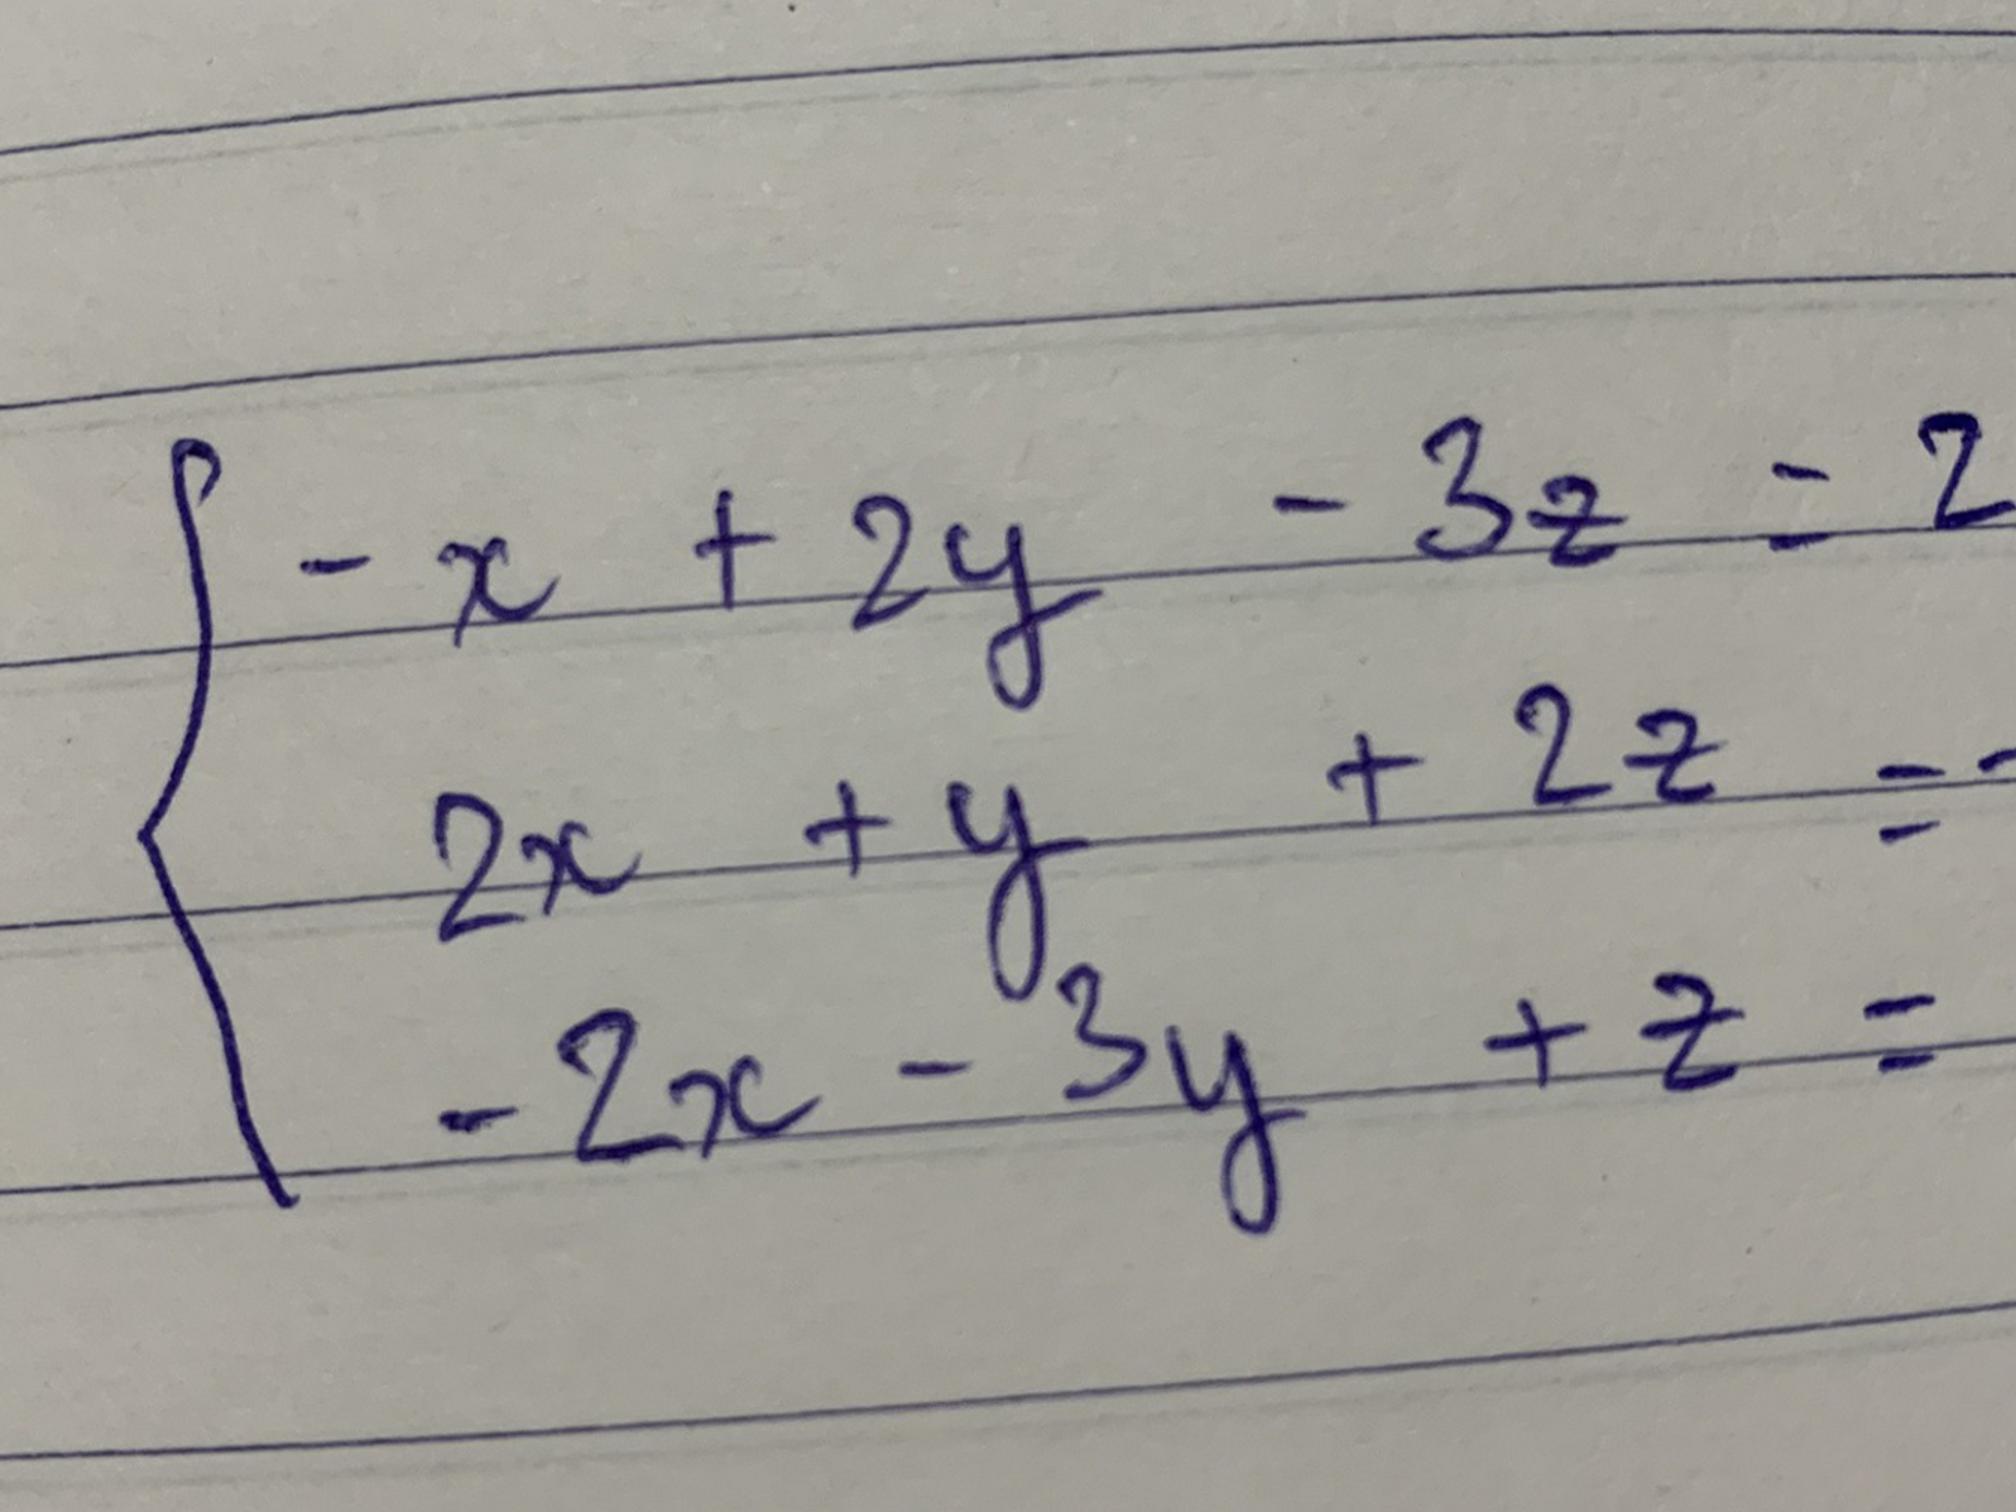 - x + 2y - 3z = 2
2x + y + 2z = -
- 2x - 3y + z =